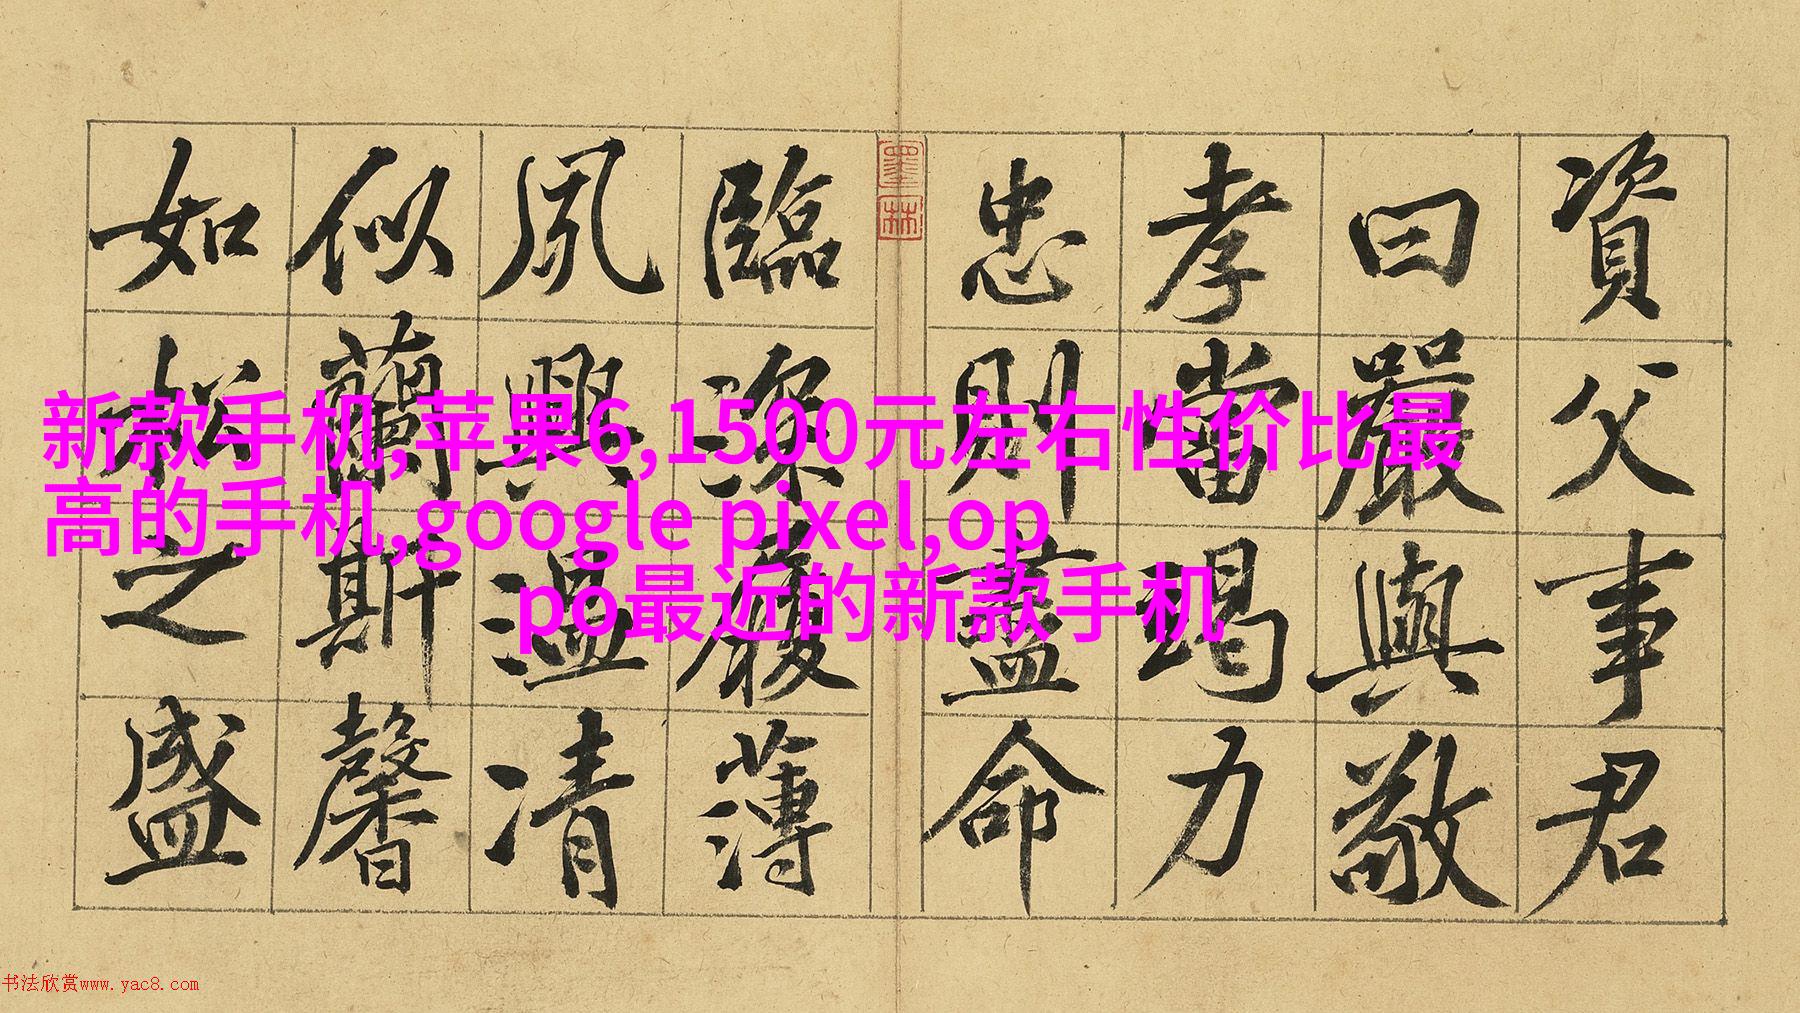 資父事君
曰嚴與敬
孝當竭力
忠則盡命
墨林
臨深履薄
夙興溫凊
似蘭斯馨
如松之盛
新款手机,苹果6,1500元左右性价比最
高的手机,google pixel,op
po最近的新款手机
书法欣赏www.yac8.com